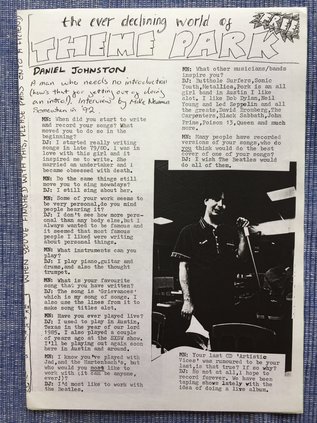 the ever declining world of
THEME PARK
DANIEL JOHNSTON
A man who needs no introduction
(how's that for getting out of doing
an intro!). Interviewed by Mike
Sometime in '92
MN: When did you start to write
and record your songs? What
moved you to do so in the
beginning?
DJ: I started really writing
songs in late 79/80. I was in
love with this girl and it
inspired me to write. She
married an undertaker and I
became obsessed with death.
MN: Do the same things still
move you to sing nowadays?
DJ: I still sing about her.
MN: Some of your work seems to
be very personal,do you mind
people hearing it?
DJ: I don't see how more perso-
nal than any body else,but I
always wanted to be famous and
it seemed that most famous
people I liked were writing
about personal things.
MN: What instruments can you
play?
DJ: I play piano,guitar and
drums,and also the thought
trumpet.
MN: What is your favourite
song that you have written?
DJ: The song is 'Grievances'
which is my song of songs. I
also use the lines from it to
make song titles alot.
MN: Have you ever played live?
DJ: I used to play in Austin,
Texas in the year of our lord
1985. I also played a couple
of years ago at the SXSW show.
I'll be playing out again soon
here in Austin and around.
MN: I know you've played with
Jad,and the Hartenbach's, but
who would you most like to
work with (it can be anyone,
ever!)?
DJ: I'd most like to work with
the Beatles.
MN: What other musicians/bands
inspire you?
DJ: Butthole Surfers,Sonic
Youth,Metallica,Pork is an all
girl band in Austin I like
alot, I like Bob Dylan,Neil
Young and Led Zeppelin and all
the greats,David Bromberg,The
Carpenters,Black Sabbath,John
Prine,Poison 13,Queen and much
more.
MN: Many people have recorded
versions of your songs,who do
you think would do the best
cover of one of your songs?
DJ: I wish The Beatles would
do all of them.
MN: Your last CD 'Artistic
Vices' was rumoured to be your
last,is that true? If so why?
DJ: No not at all,I hope to
record forever. We have been
taping shows lately with the
idea of doing a live album.